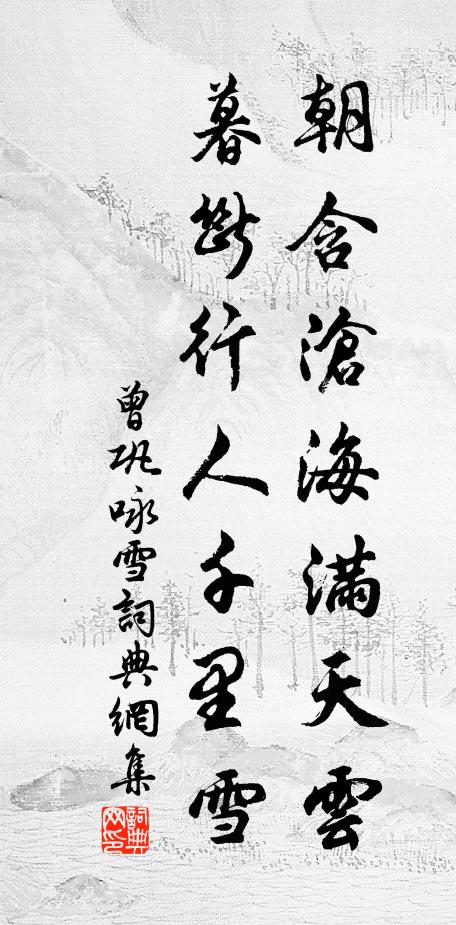 朝含滄海滿天雲
暮斷行人千里雪
曾巩咏雪詞典網集
詞典
网印